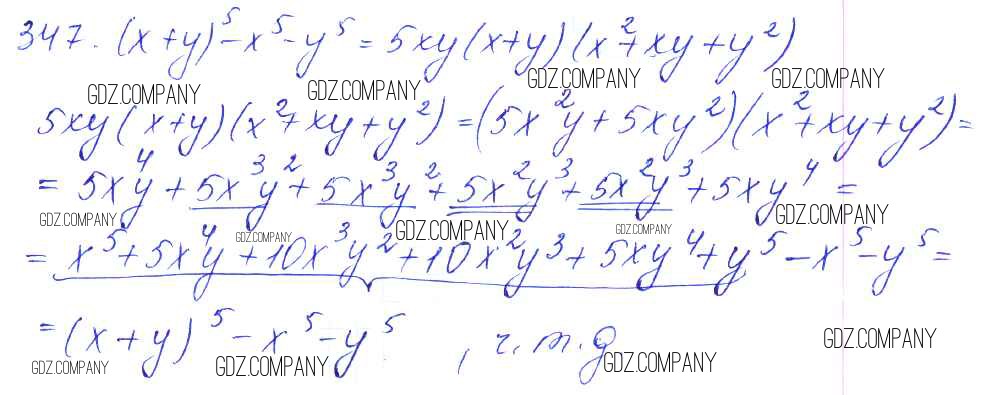 347. (x+y)⁵-x⁵-y⁵ = 5xy(x+y)(x²+xy+y²)
GDZ.COMPANY GDZ.COMPANY GDZ.COMPANY GDZ.COMPANY
5xy(x+y)(x²+xy+y²) = (5x²y+5xy²)(x²+xy+y²) =
= 5x⁴y + 5x³y² + 5x³y² + 5x²y³ + 5x²y³ + 5xy⁴ =
GDZ.COMPANY GDZ.COMPANY GDZ.COMPANY GDZ.COMPANY GDZ.COMPANY
= x⁵+5x⁴y+10x³y²+10x²y³+5xy⁴+y⁵-x⁵-y⁵ =
= (x+y)⁵-x⁵-y⁵, ч.т.д
GDZ.COMPANY GDZ.COMPANY GDZ.COMPANY GDZ.COMPANY